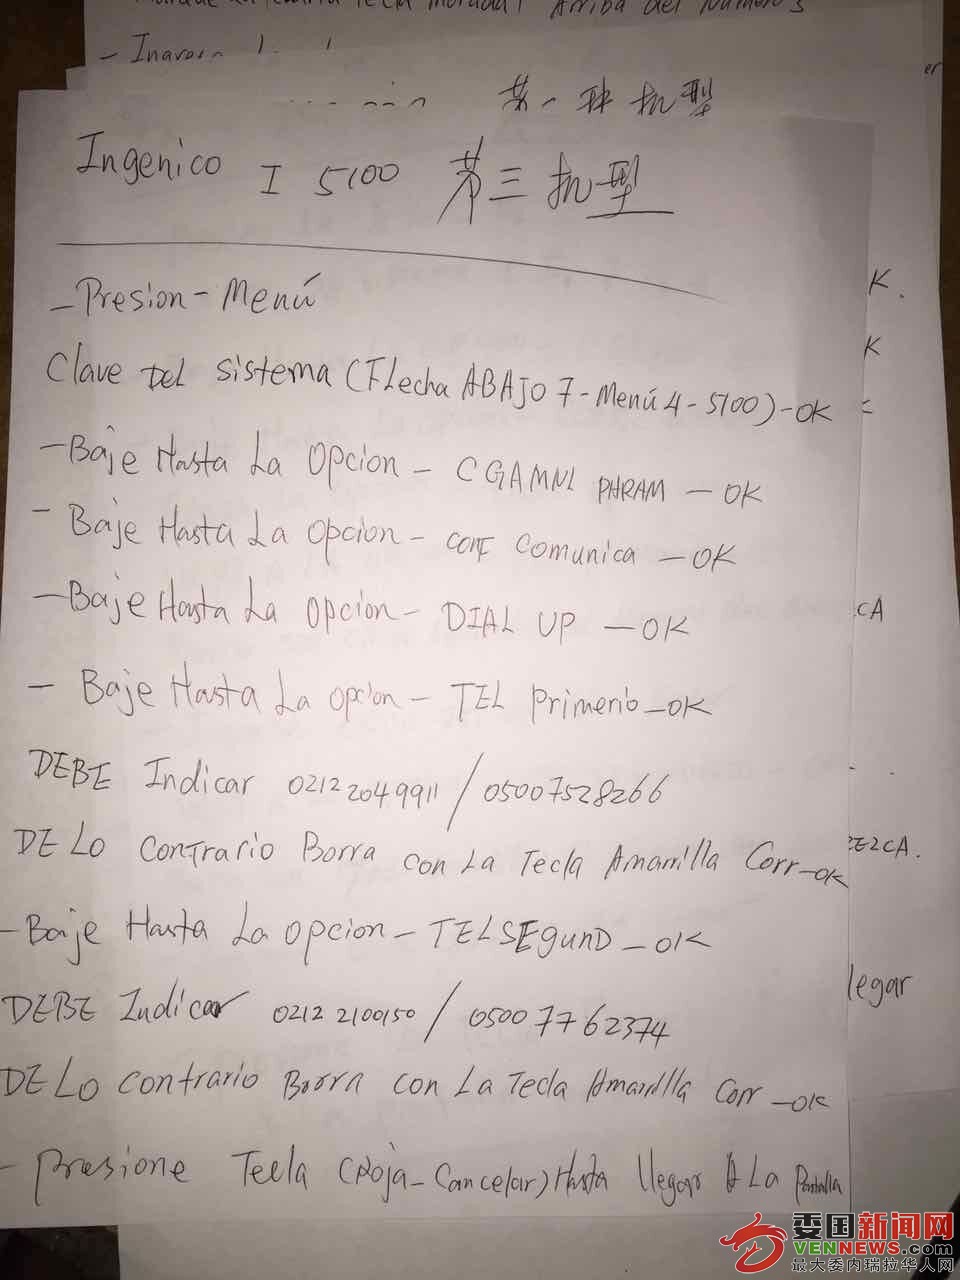 Arriba del Numero 3
第一种机型
Ingenico I 5100 第三机型
- Presion - Menú
Clave DEL Sistema (FLecha ABAJO 7 - Menú 4 - 5100) - OK
- Baje Hasta La Opcion - CGAMNL PHRAM - OK
- Baje Hasta La Opcion - CONF Comunica - OK
- Baje Hasta La Opcion - DIAL UP - OK
- Baje Hasta La Opcion - TEL Primerio - OK
DEBE Indicar 0212 2049911 / 05007528266
DE LO Contrario Borra con La Tecla Amarrilla Corr - OK
- Baje Hasta La Opcion - TELSEgunD - OK
DEBE Indicar 0212 2100150 / 0500 7762374
DE LO Contrario Borra con La Tecla Amarilla Corr - OK
- Presione Tecla (Roja - Cancelar) Hasta llegar A La Pantalla
er
K.
K
CA
llegar
委国新闻网
VENNEWS.com
最大委内瑞拉华人网